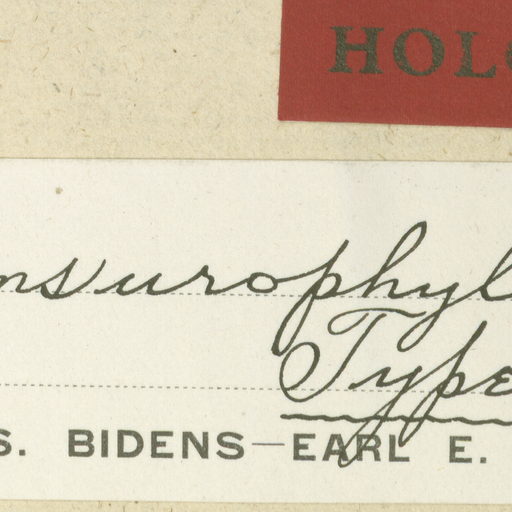 HOLO
nsurophyl
Type
S. BIDENS—EARL E.